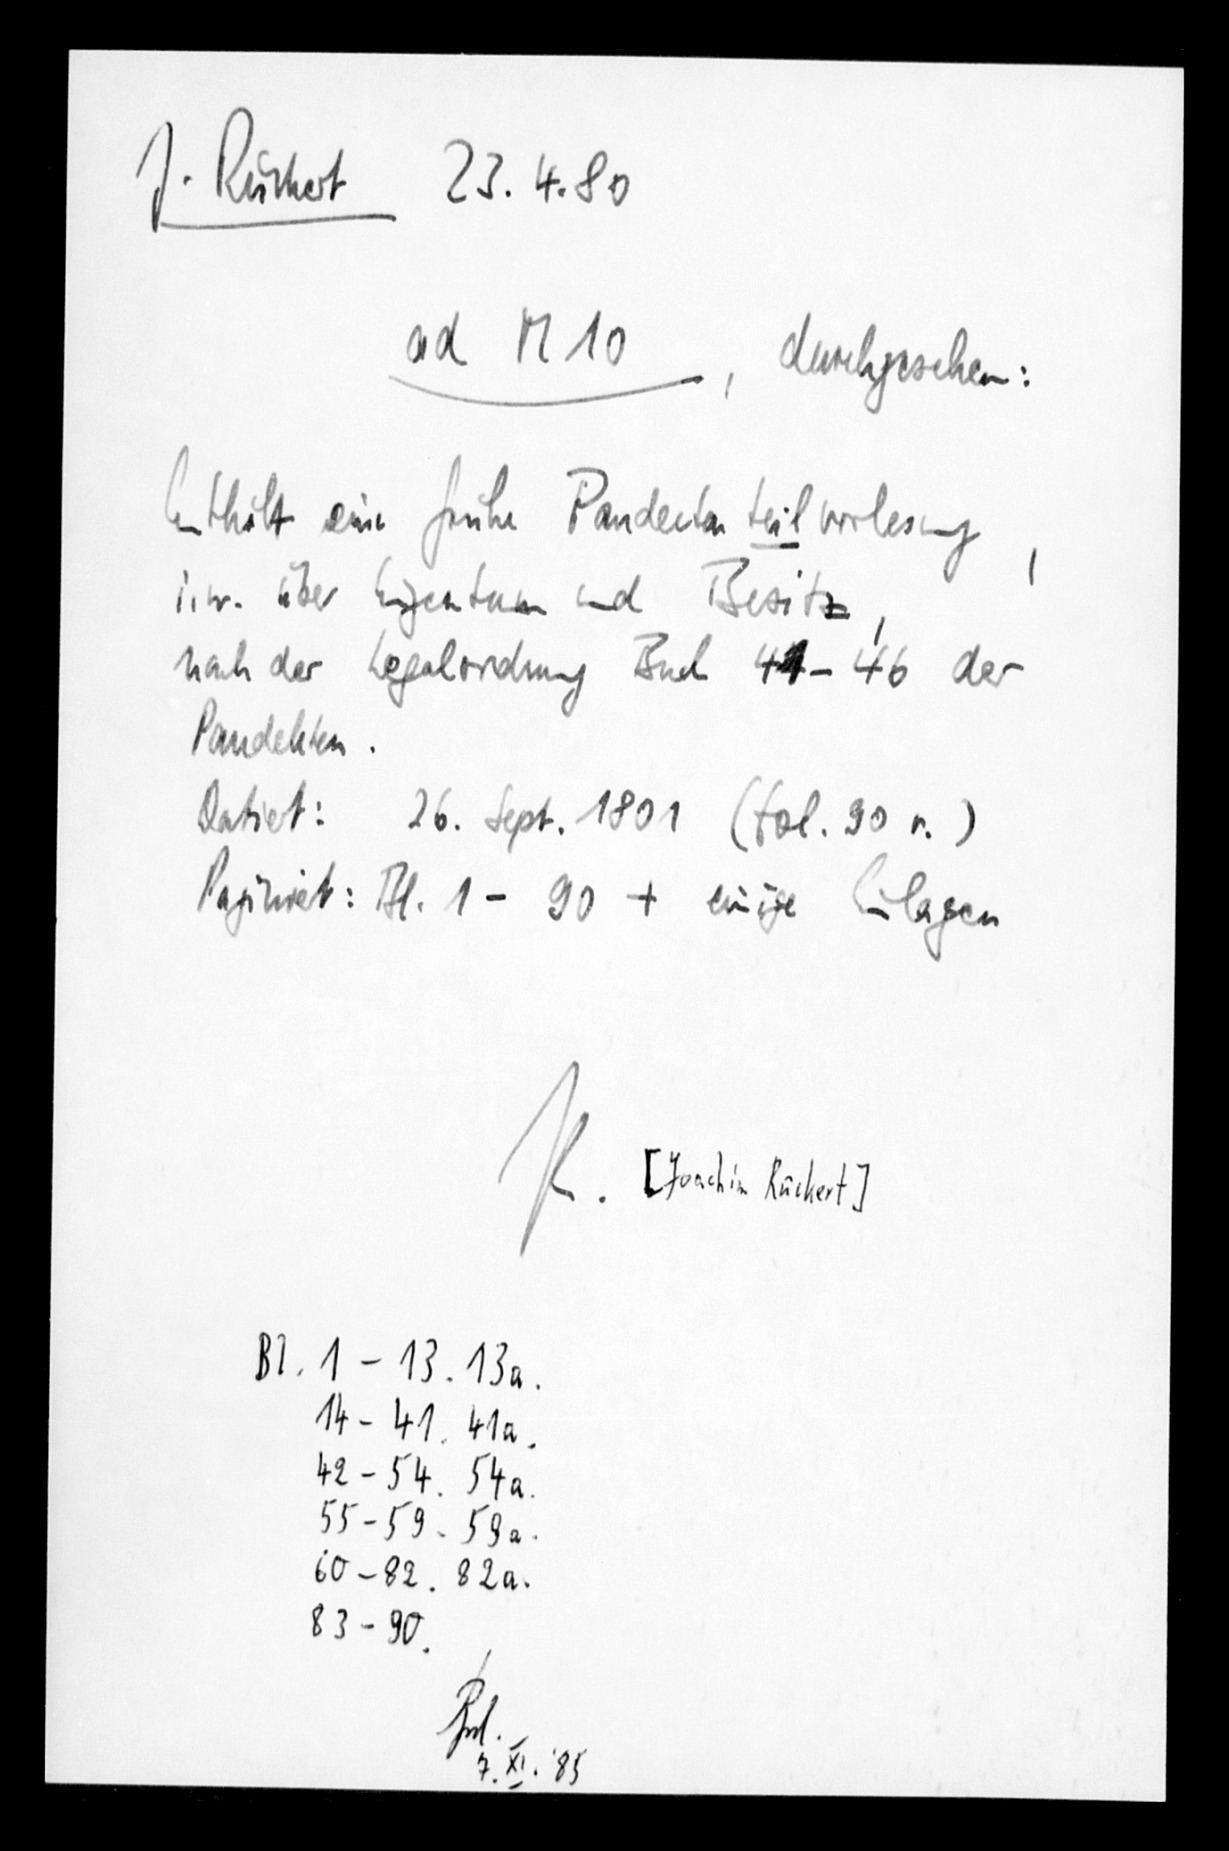 J. Rückert 23.4.80
ad M 10, durchgesehen:
Enthält eine frühe Pandektenteilvorlesung,
i.w. über Eigentum und Besitz,
nach der Legalordnung Buch 41-46 der
Pandekten.
Datiert: 26. Sept. 1801 (fol. 90 r.)
Paginiert: Bl. 1 - 90 + einige Einlagen
JR. [Joachim Rückert]
Bl. 1 - 13. 13a.
14 - 41. 41a.
42 - 54. 54a.
55 - 59. 59a.
60 - 82. 82a.
83 - 90.
7. XI. '85